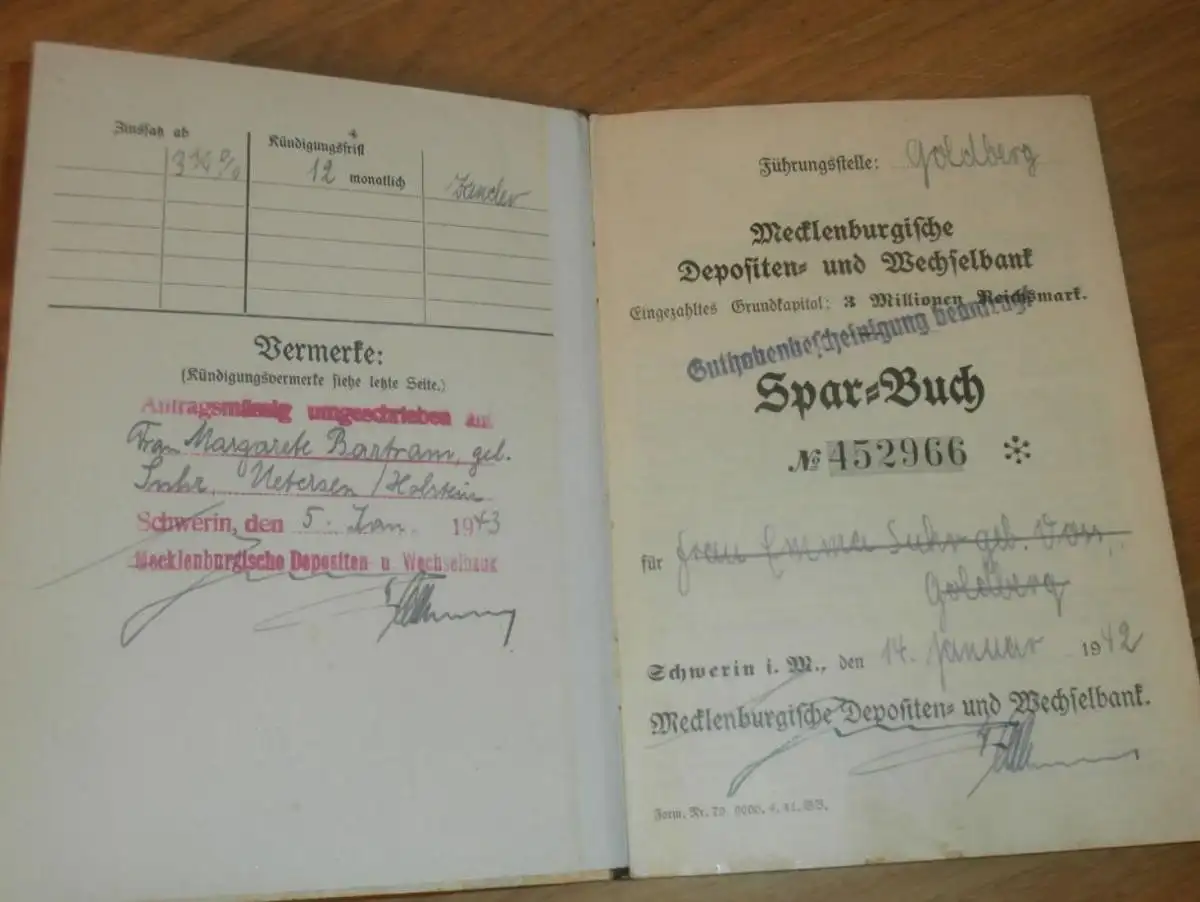 Zinssatz ab
Kündigungsfrist
12 monatlich
Vermerke:
(Kündigungsvermerke siehe letzte Seite.)
Antragsmässig umgeschrieben auf
Frau Margarete Bartram, geb.
Suhr, Uetersen/Holstein
Schwerin, den 5. Jan. 1943
Mecklenburgische Depositen u Wechselbank
Führungsstelle: Goldberg
Mecklenburgische
Depositen- und Wechselbank
Eingezahltes Grundkapital: 3 Millionen Reichsmark.
Guthabenbescheinigung beantragt
Spar-Buch
№ 452966 *
für Frau Emma Suhr geb.
Goldberg
Schwerin i. M., den 14. Januar 1942
Mecklenburgische Depositen- und Wechselbank.
Form. Nr. 70